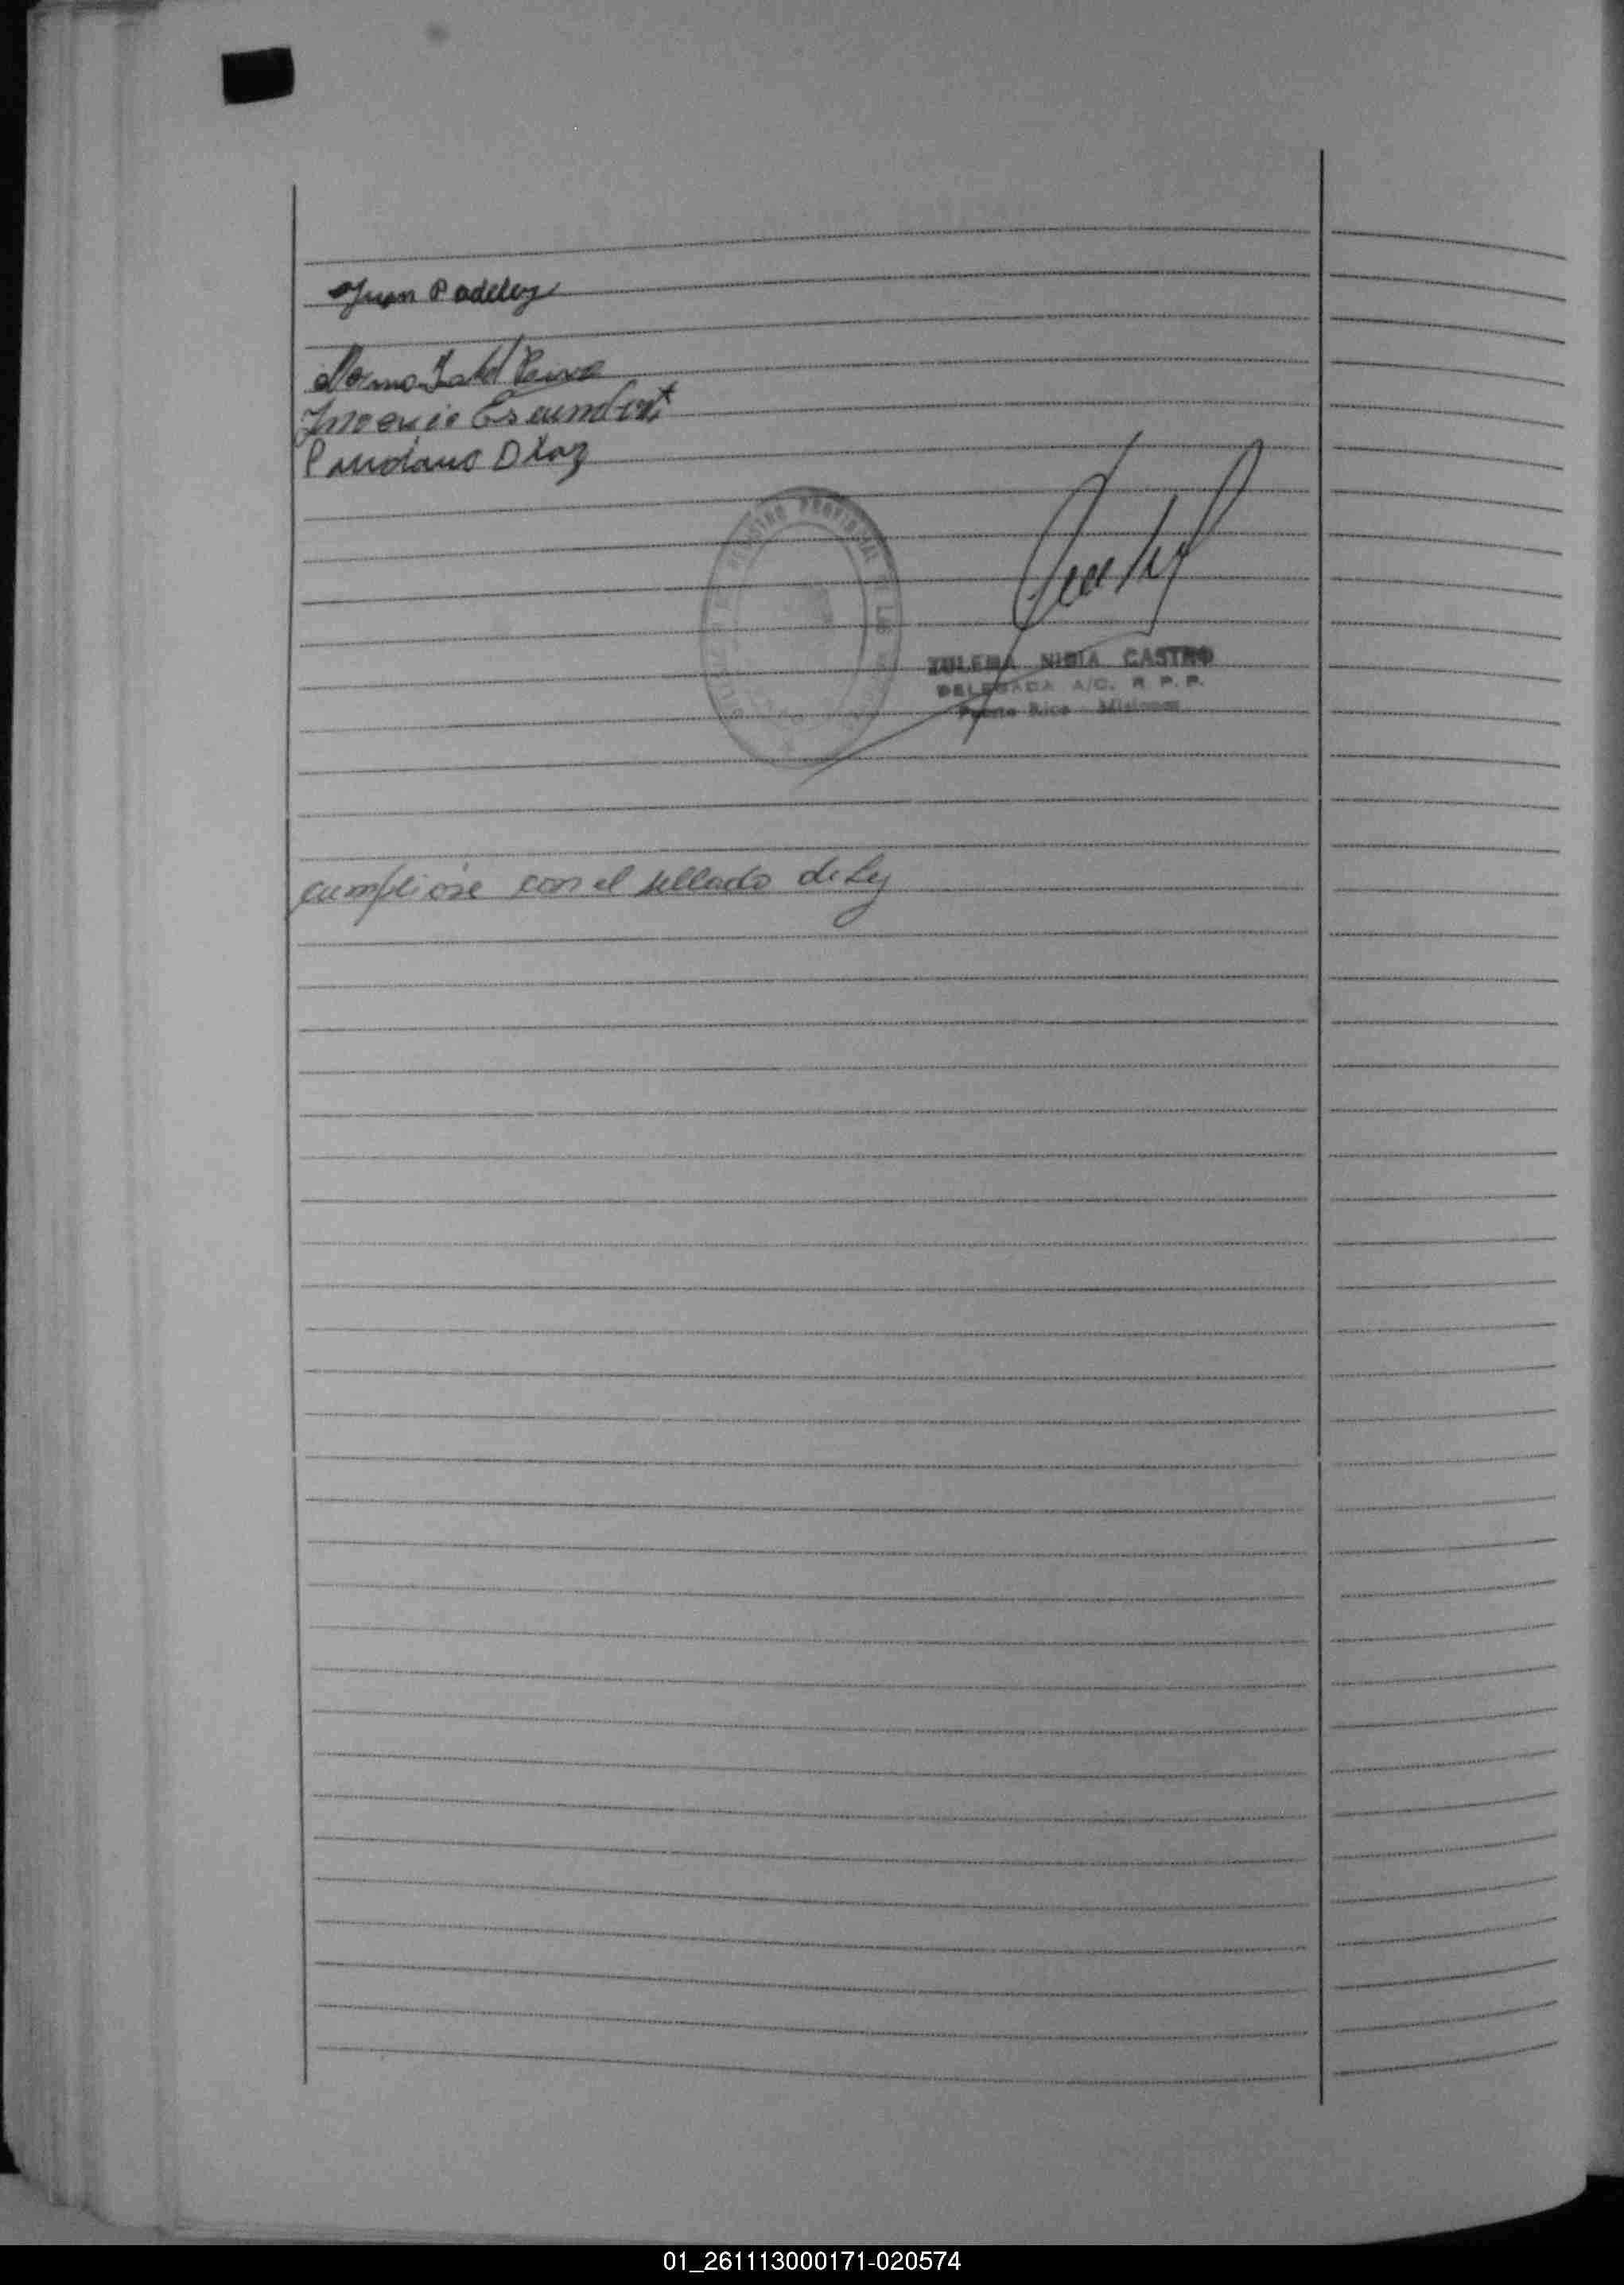 Juan Padeley
Norma Isabel Paiva
Díaz
REGISTRO PROVINCIAL DE LAS
ZULEMA NIDIA CASTRO
DELEGADA A/C. R. P. P.
Puerto Rico - Misiones
cumplióse con el sellado de Ley
01_261113000171-020574